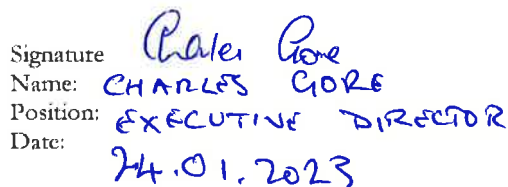 Signature Charles Gore
Name: CHARLES GORE
Position: EXECUTIVE DIRECTOR
Date: 24.01.2023